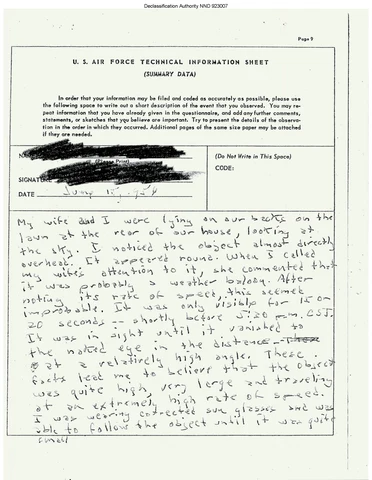 Declassification Authority NND 923007
Page 9
U. S. AIR FORCE TECHNICAL INFORMATION SHEET
(SUMMARY DATA)
In order that your information may be filed and coded as accurately as possible, please use
the following space to write out a short description of the event that you observed. You may re-
peat information that you have already given in the questionnaire, and add any further comments,
statements, or sketches that you believe are important. Try to present the details of the observa-
tion in the order in which they occurred. Additional pages of the same size paper may be attached
if they are needed.
(Please Print)
(Do Not Write in This Space)
CODE:
SIGNATURE
DATE June
My wife and I were lying on our backs on the
lawn at the rear of our house, looking at
the sky. I noticed the object almost directly
overhead. It appeared round. When I called
my wife's attention to it, she commented that
it was probably a weather baloon. After
noting its rate of speed, this seemed
improbable. It was only visible for 15 or
20 seconds -- shortly before 5:20 p.m. CST.
It was in sight until it vanished to
the naked eye in the distance - These
at a relatively high angle. These
facts lead me to believe that the object
was quite high, very large and traveling
at an extremely high rate of speed.
I was wearing corrected sun glasses and was
able to follow the object until it was quite
small